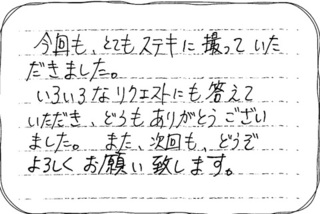 今回も、とてもステキに撮っていた
だきました。
いろいろなリクエストにも答えて
いただき、どうもありがとうござい
ました。また、次回も、どうぞ
よろしくお願い致します。